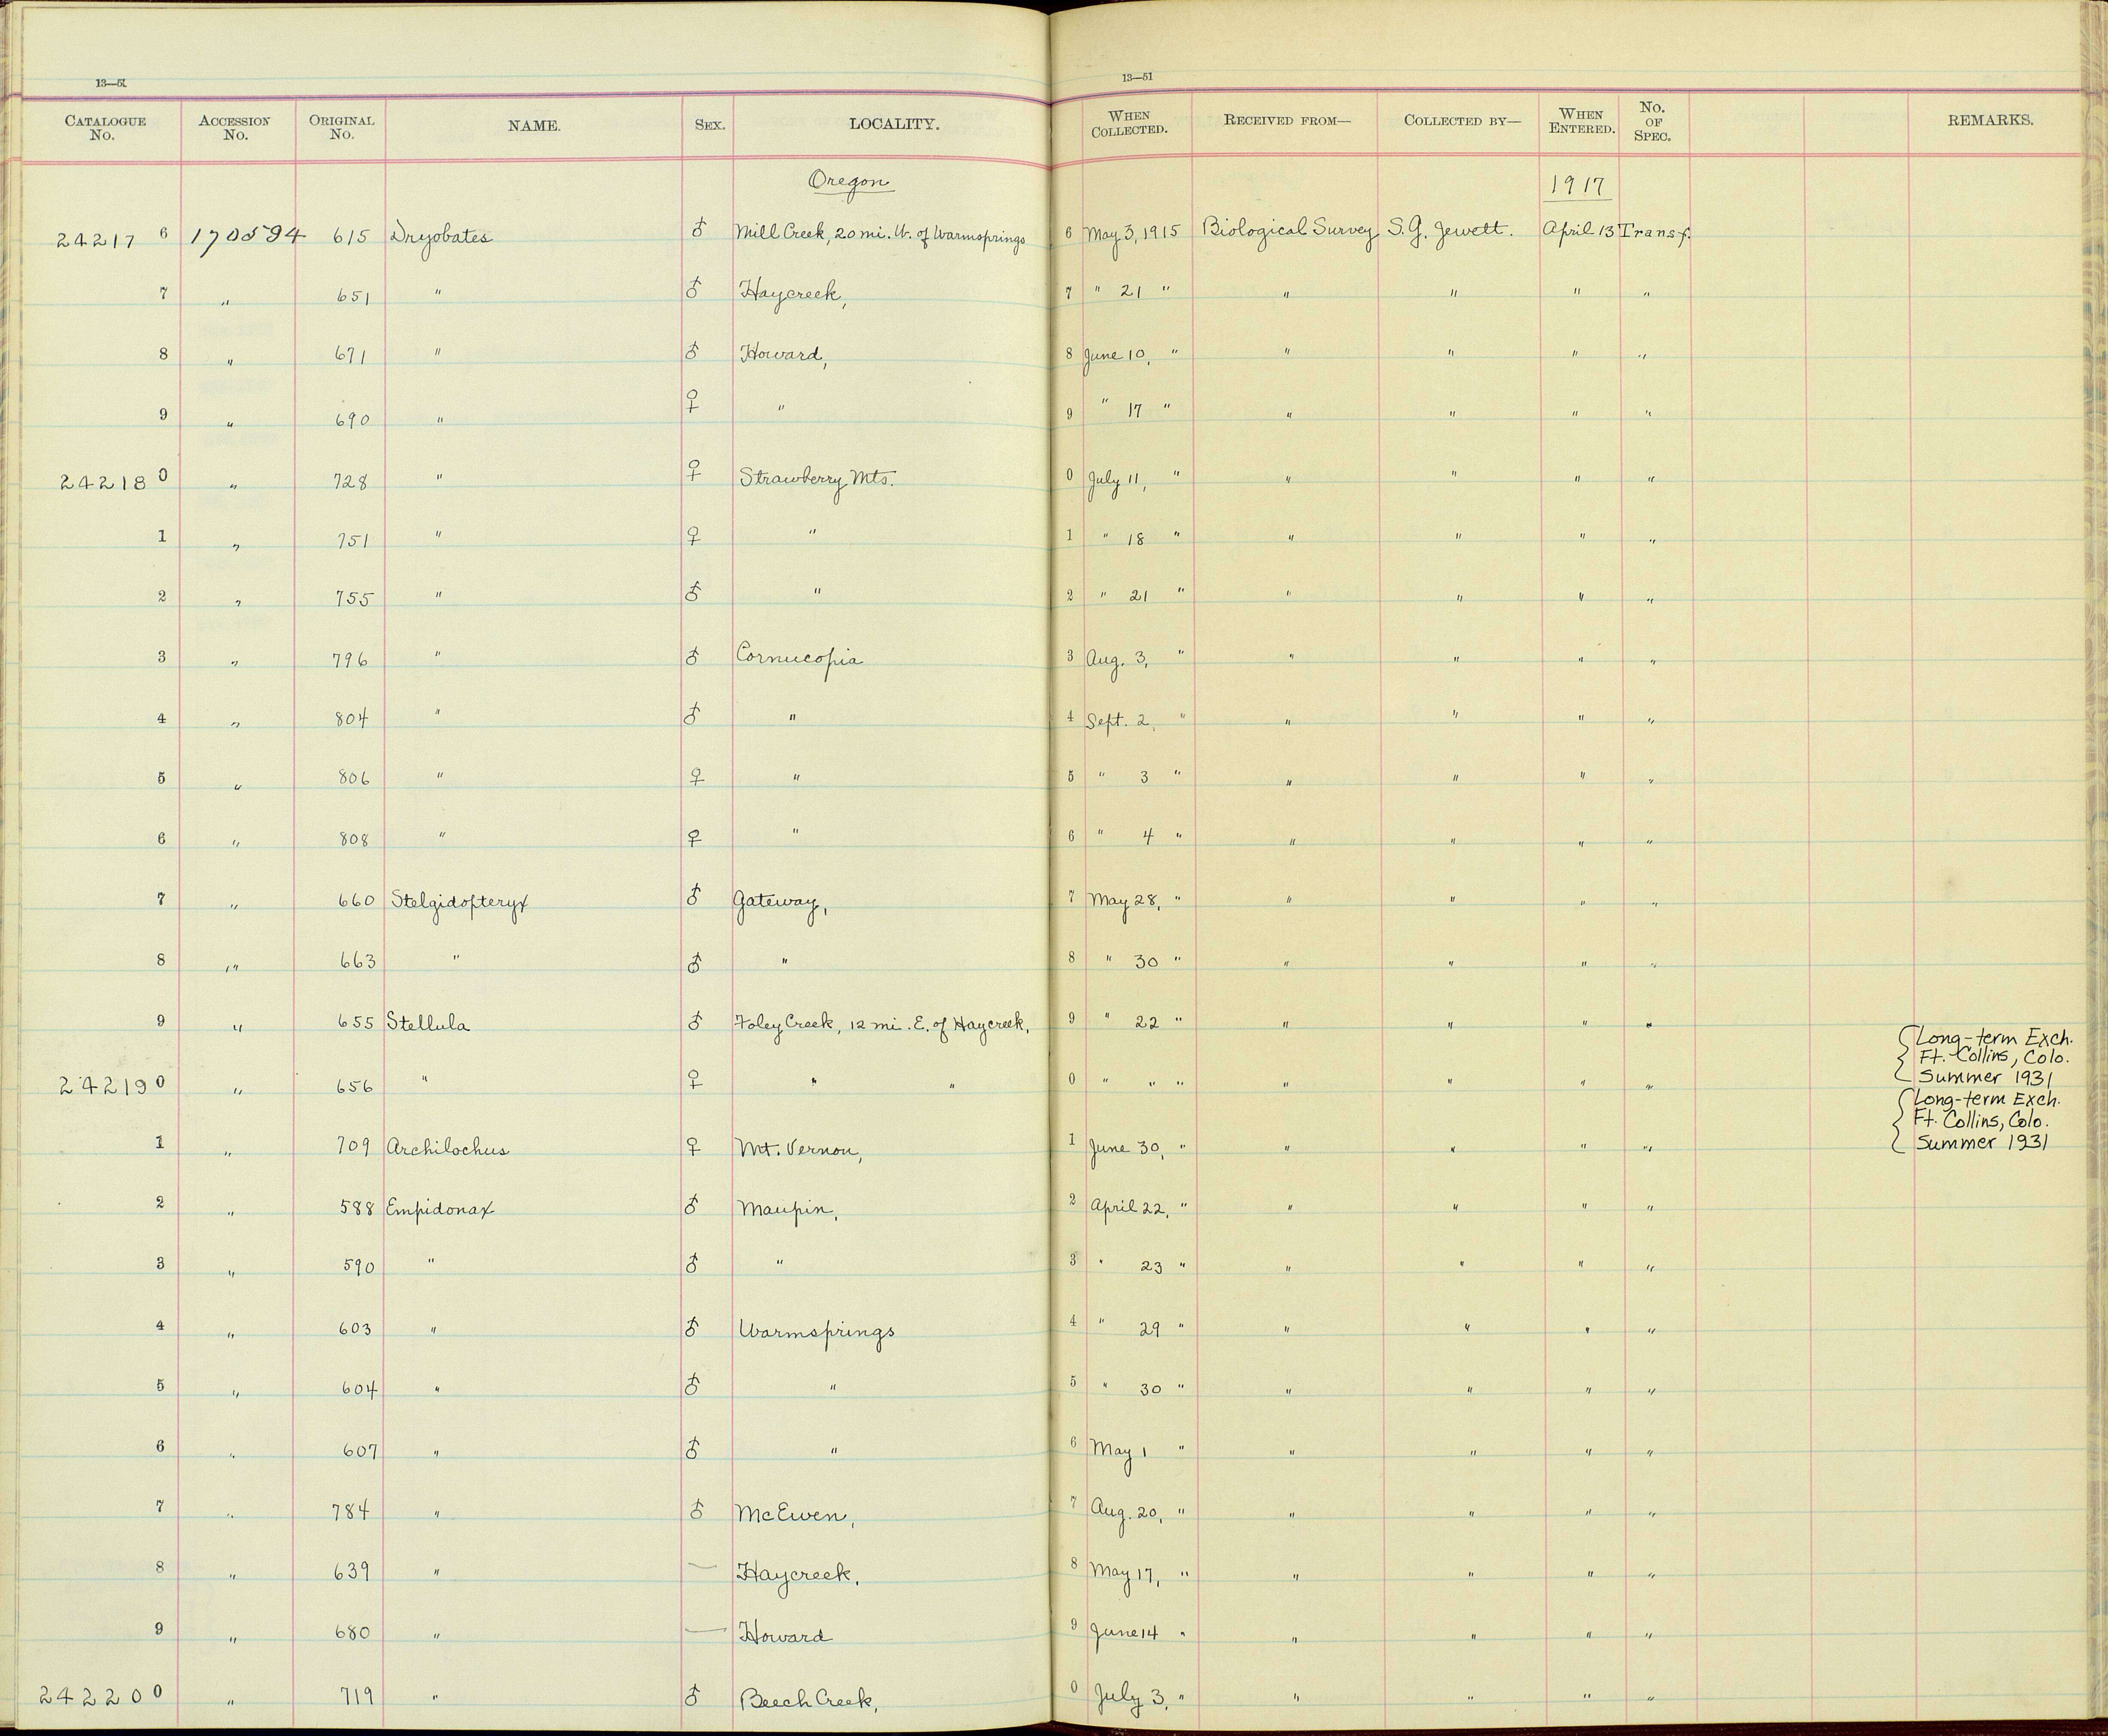 13—51 13—51
CATALOGUE No. ACCESSION No. ORIGINAL No. NAME. SEX. LOCALITY. WHEN COLLECTED. RECEIVED FROM— COLLECTED BY— WHEN ENTERED. No. OF SPEC. REMARKS.
Oregon 1917
24217 6 170594 615 Dryobates ♂ Mill Creek, 20 mi. W. of Warmsprings 6 May 3, 1915 Biological Survey S. G. Jewett. April 13 Transf.
7 " 651 " ♂ Haycreek, 7 " 21 " " " " "
8 " 671 " ♂ Howard, 8 June 10, " " " " "
9 " 690 " ♀ " 9 " 17 " " " " "
24218 0 " 728 " ♀ Strawberry Mts. 0 July 11, " " " " "
1 " 751 " ♀ " 1 " 18 " " " " "
2 " 755 " ♂ " 2 " 21 " " " " "
3 " 796 " ♂ Cornucopia 3 Aug. 3, " " " " "
4 " 804 " ♂ " 4 Sept. 2, " " " " "
5 " 806 " ♀ " 5 " 3 " " " " "
6 " 808 " ♀ " 6 " 4 " " " " "
7 " 660 Stelgidopteryx ♂ Gateway, 7 May 28, " " " " "
8 " 663 " ♂ " 8 " 30 " " " " "
9 " 655 Stellula ♂ Foley Creek, 12 mi. E. of Haycreek, 9 " 22 " " " " "
Long-term Exch.
Ft. Collins, Colo.
Summer 1931
24219 0 " 656 " ♀ " " 0 " " " " " " "
Long-term Exch.
Ft. Collins, Colo.
Summer 1931
1 " 709 Archilochus ♀ Mt. Vernon, 1 June 30, " " " " "
2 " 588 Empidonax ♂ Maupin, 2 April 22, " " " " "
3 " 590 " ♂ " 3 " 23 " " " " "
4 " 603 " ♂ Warmsprings 4 " 29 " " " " "
5 " 604 " ♂ " 5 " 30 " " " " "
6 " 607 " ♂ " 6 May 1 " " " " "
7 " 784 " ♂ McEwen, 7 Aug. 20, " " " " "
8 " 639 " — Haycreek, 8 May 17, " " " " "
9 " 680 " — Howard 9 June 14 " " " " "
24220 0 " 719 " ♂ Beech Creek, 0 July 3, " " " " "